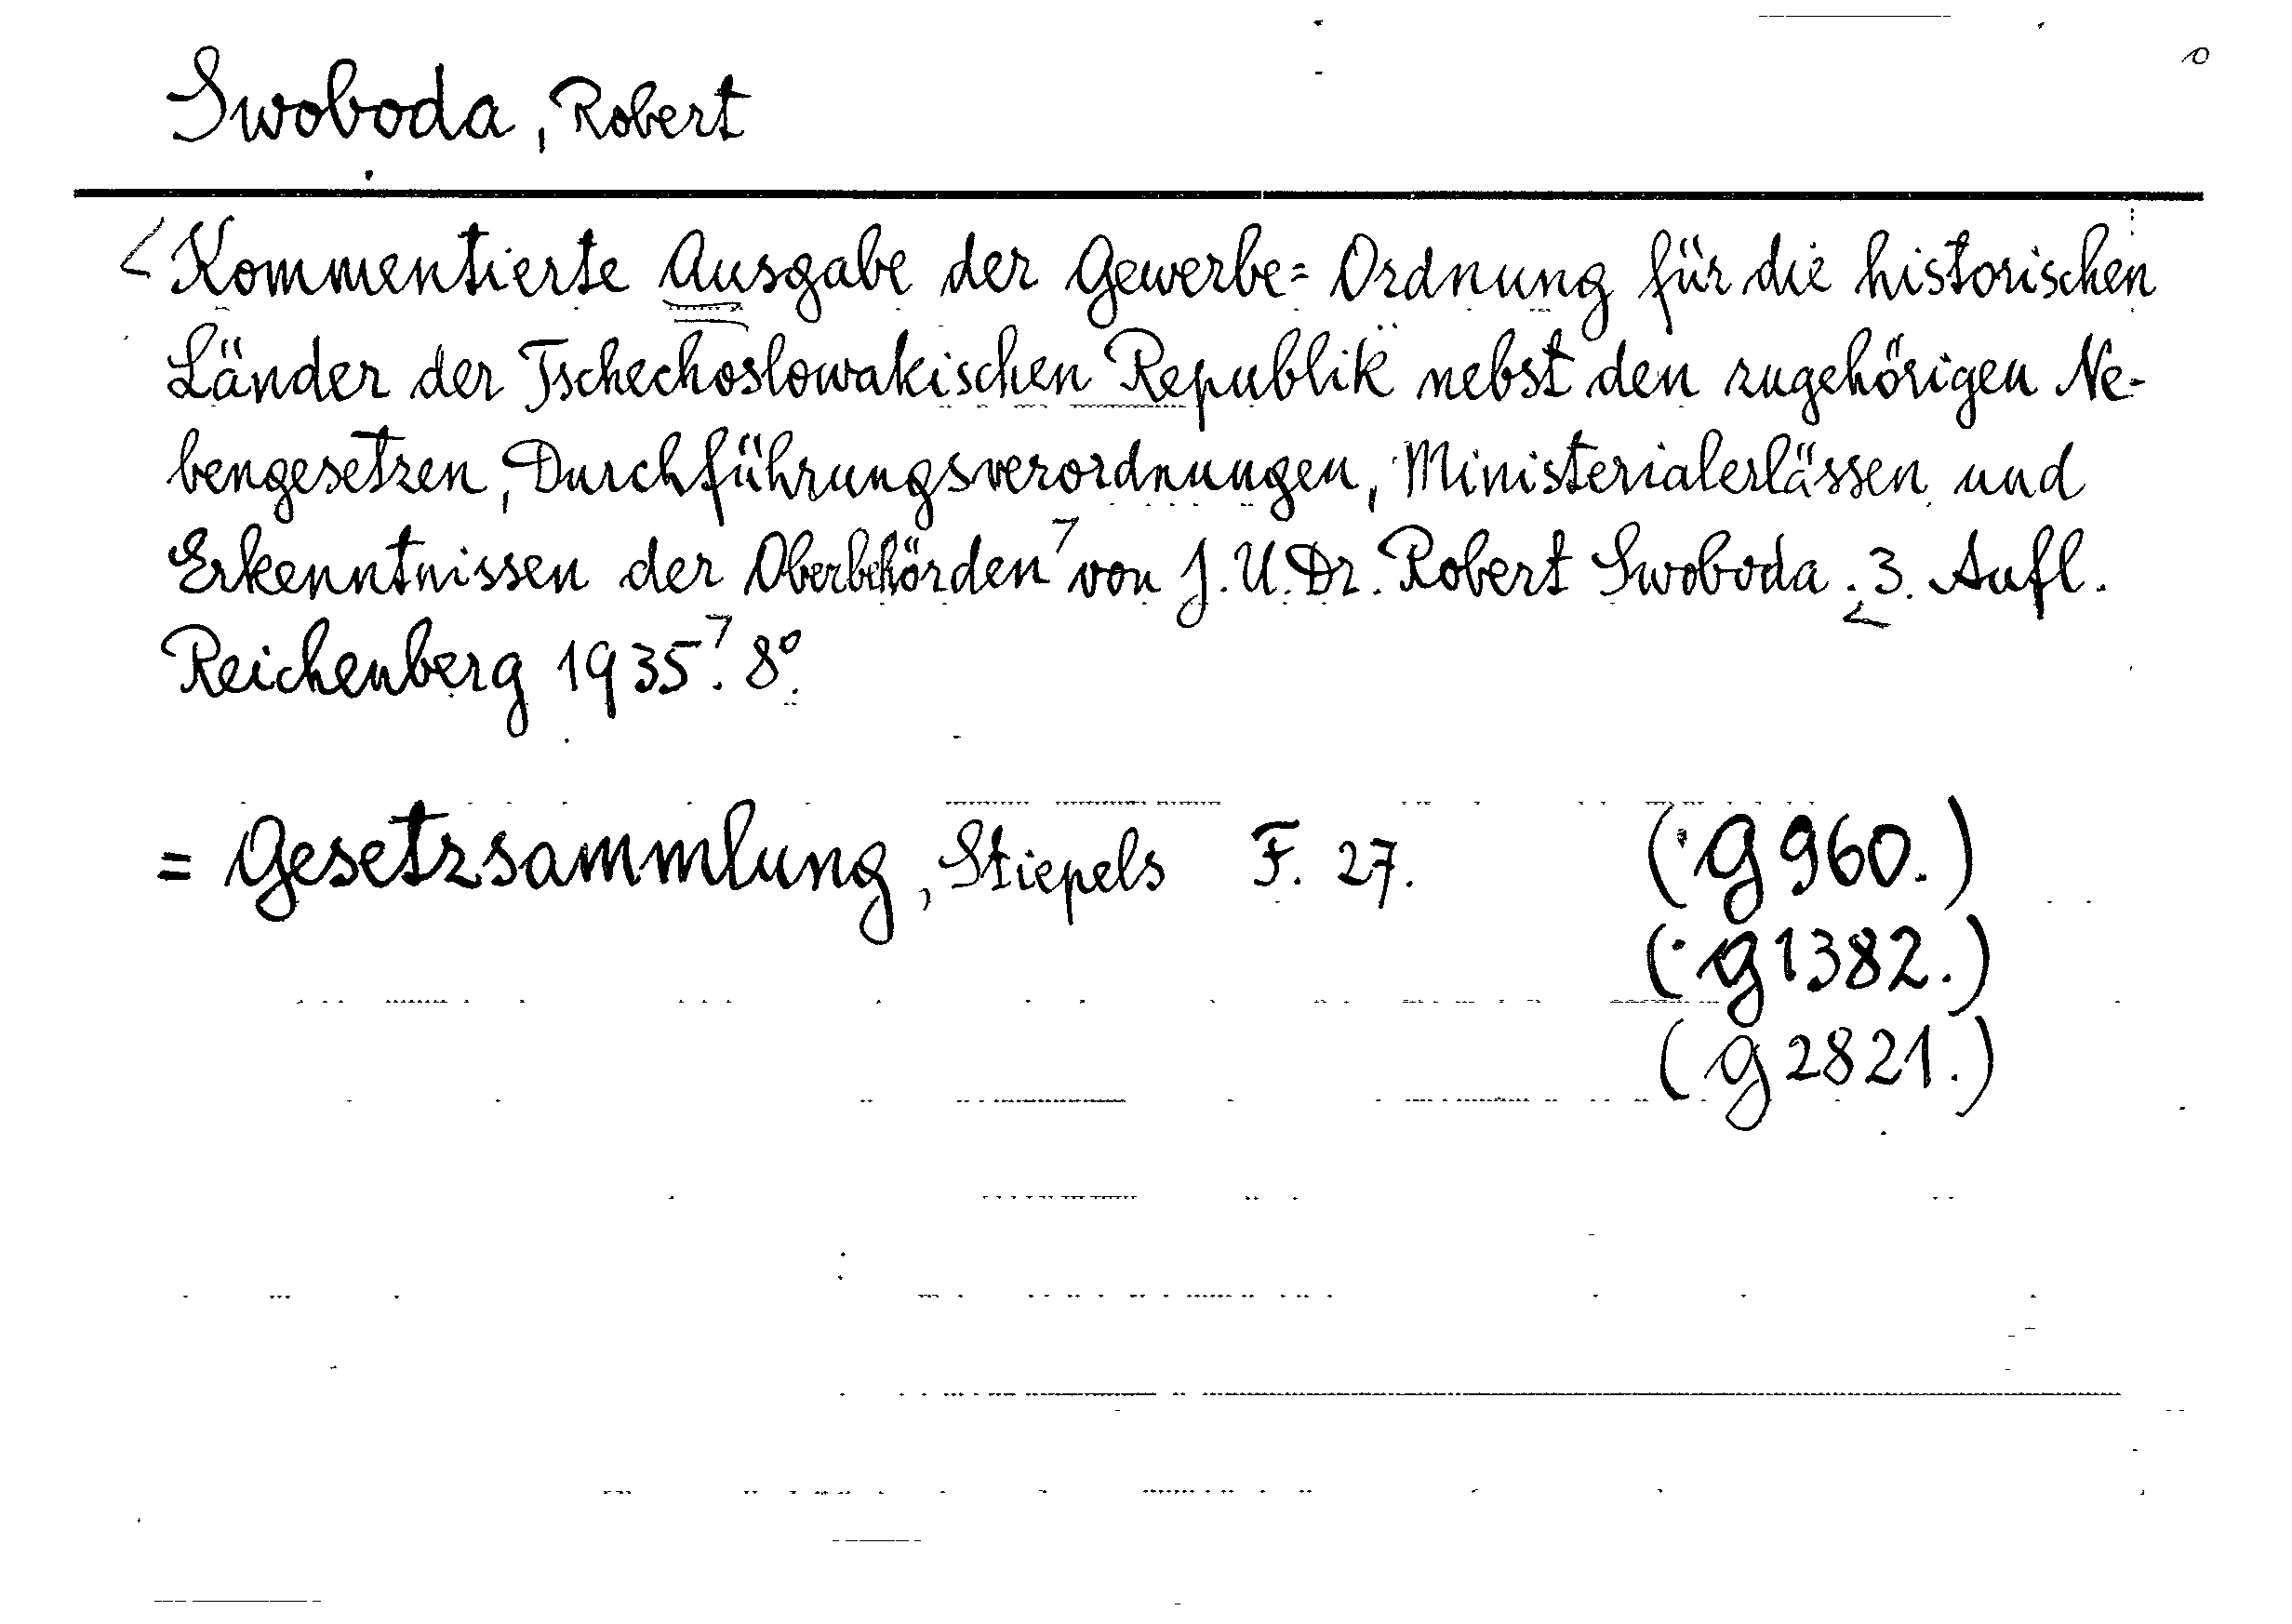 Swoboda, Robert
Kommentierte Ausgabe der Gewerbe= Ordnung für die historischen
Länder der Tschechoslowakischen Republik nebst den zugehörigen Ne-
bengesetzen, Durchführungsverordnungen, Ministerialerlässen und
Erkenntnissen der Oberbehörden von J. U. Dr. Robert Swoboda. 3. Aufl.
Reichenberg 1935. 8°.
= Gesetzsammlung, Stiepels F. 27. (G 960.)
(G 1382.)
(G 2821.)